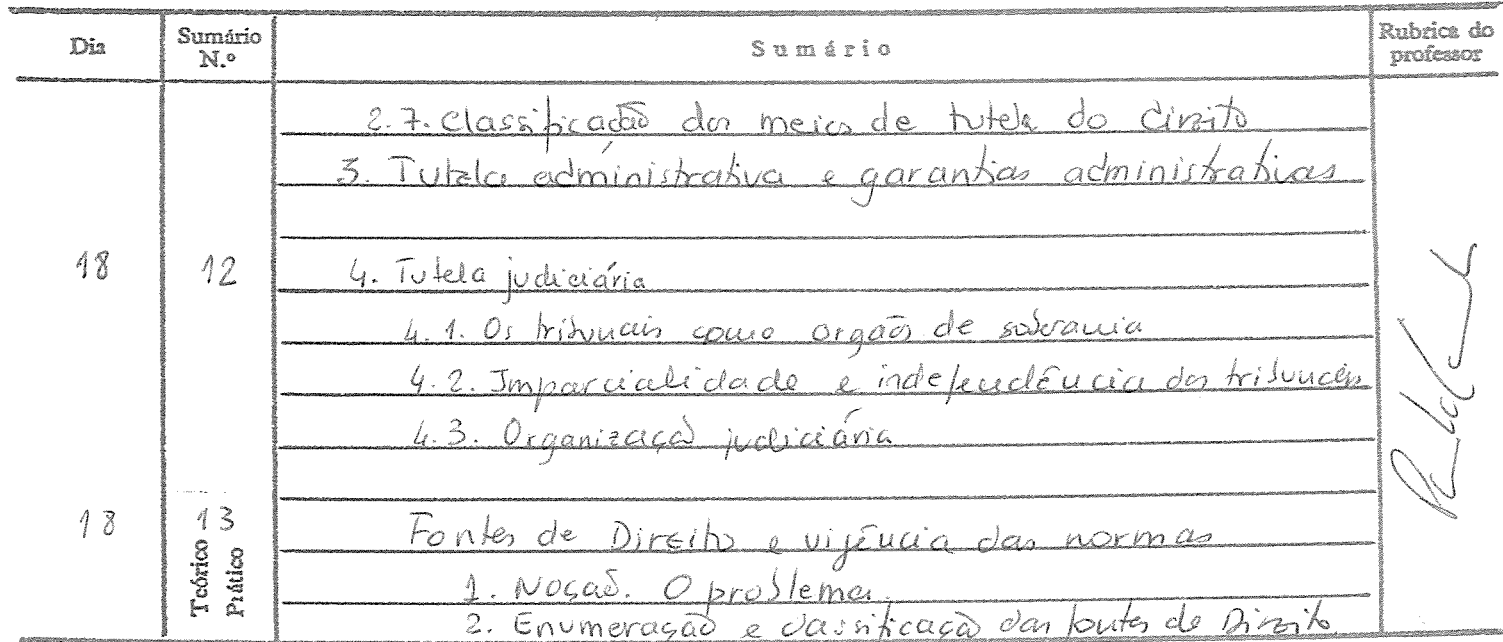 Dia Sumário N.º Sumário Rubrica do professor
2.7. Classificação dos meios de tutela do direito
3. Tutela administrativa e garantias administrativas
18 12 4. Tutela judiciária
4.1. Os tribunais como orgãos de soberania
4.2. Imparcialidade e independência dos tribunais
4.3. Organização judiciária
18 13 Fontes de Direito e vigência das normas
Teórico Prático
1. Noção. O problema.
2. Enumeração e classificação das fontes de Direito